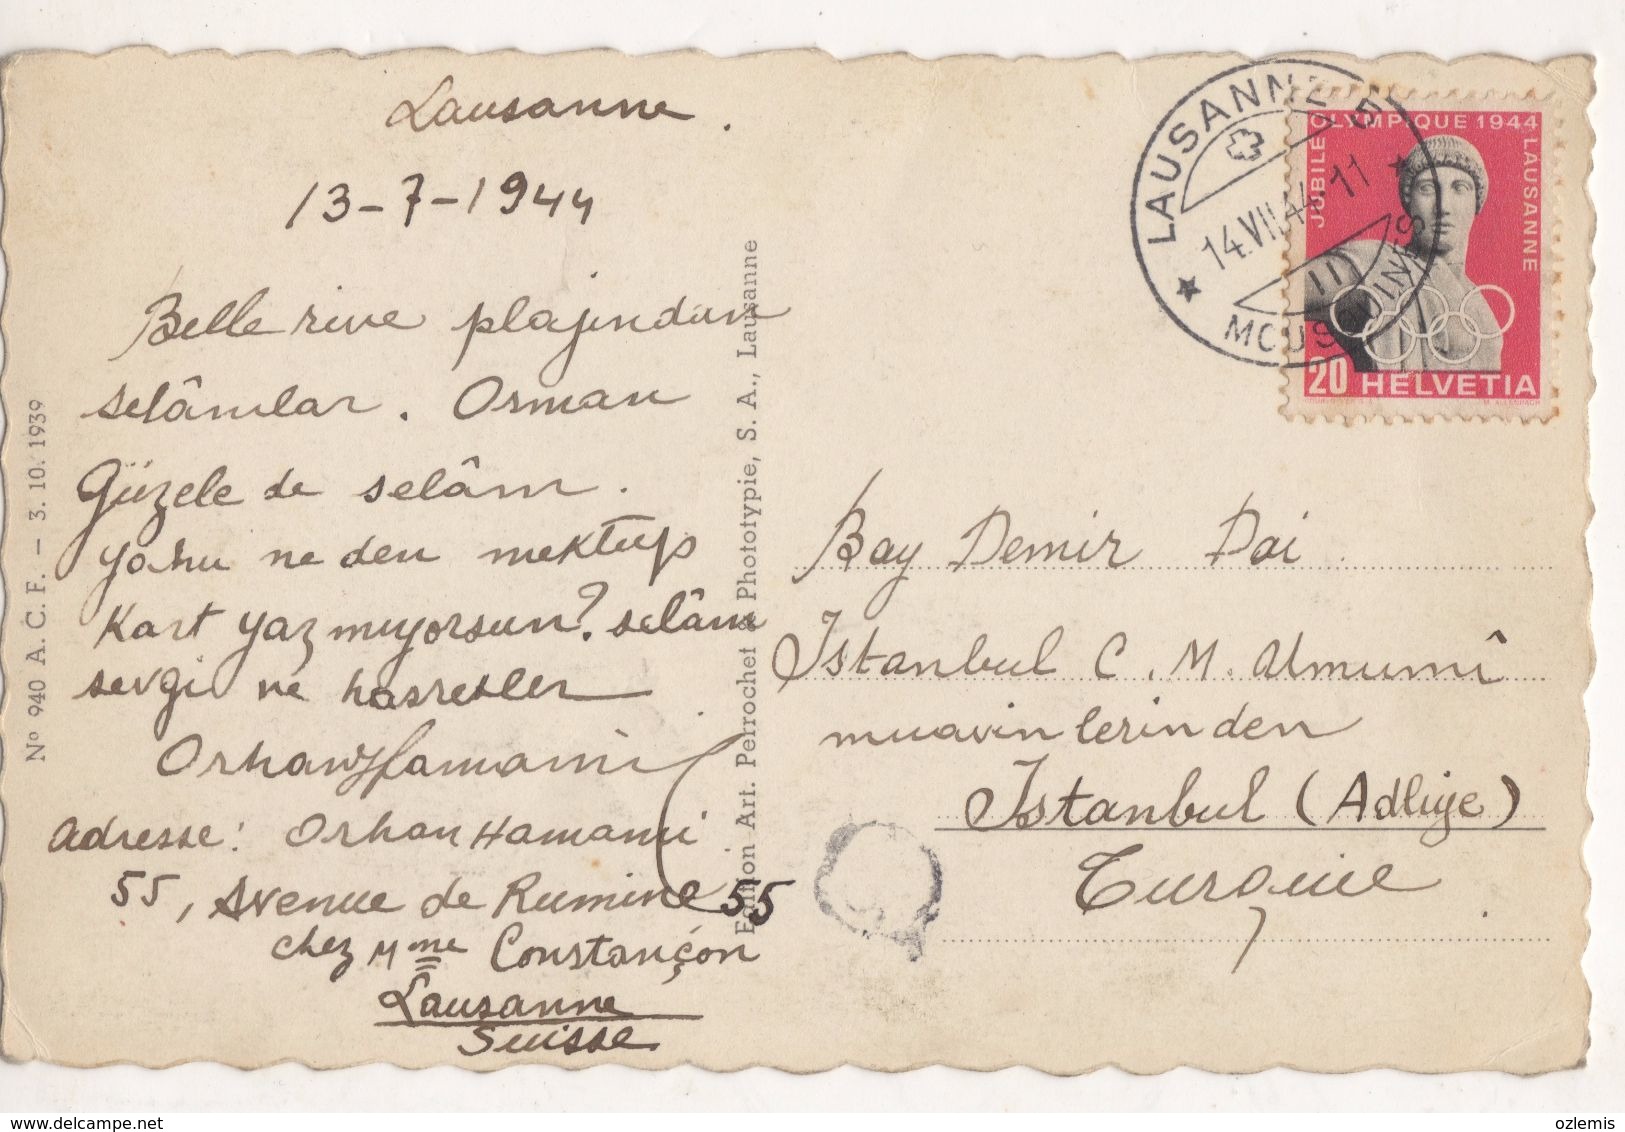 Lausanne.
13-7-1944
Belle rive plajından
selâmlar. Orman
Güzele de selâm.
yahu neden mektup
kart yazmıyorsun? selâm
sevgi ve hasretler
Orhan Hamami
adresse: Orhan Hamami
55, Avenue de Rumine 55
chez Mme Constançon
Lausanne
Suisse.
Nº 940 A. C. F. – 3. 10. 1939
Edition Art. Perrochet & Phototypie, S. A., Lausanne
LAUSANNE 5
14.VII.44. 11
MOUSQUINES
JUBILE OLYMPIQUE 1944 LAUSANNE
20 HELVETIA
Bay Demir Dai
İstanbul C. M. Umumî
muavinlerinden
İstanbul (Adliye)
Turquie
ozlemis